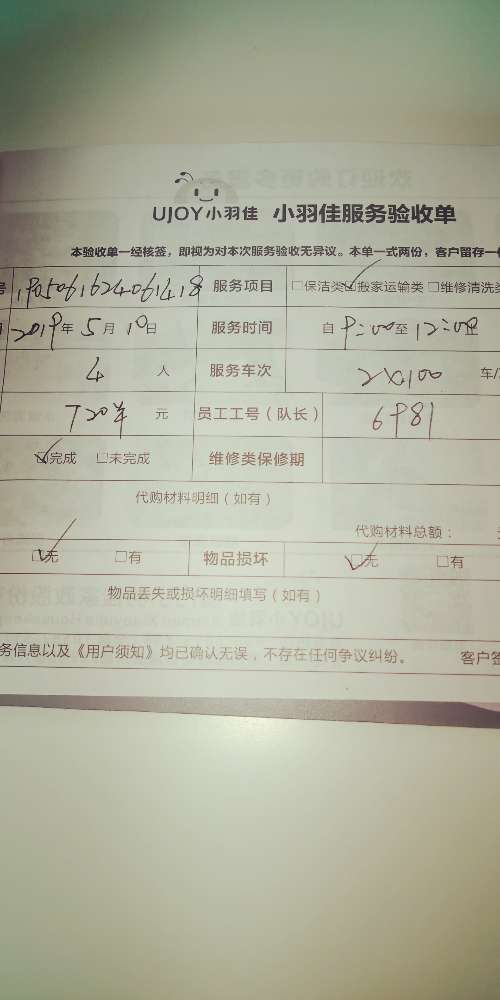 UJOY小羽佳 小羽佳服务验收单
本验收单一经核签,即视为对本次服务验收无异议。本单一式两份,客户留存一
号 1905061624061418 服务项目 □保洁类 ☑搬家运输类 □维修清洗类
2019年5月10日 服务时间 自9:00至12:00止
4 人 服务车次 2×100 车/
720 元 员工工号(队长) 6981
☑完成 □未完成 维修类保修期
代购材料明细(如有)
代购材料总额:
☑无 □有 物品损坏 ☑无 □有
物品丢失或损坏明细填写(如有)
务信息以及《用户须知》均已确认无误,不存在任何争议纠纷。 客户签